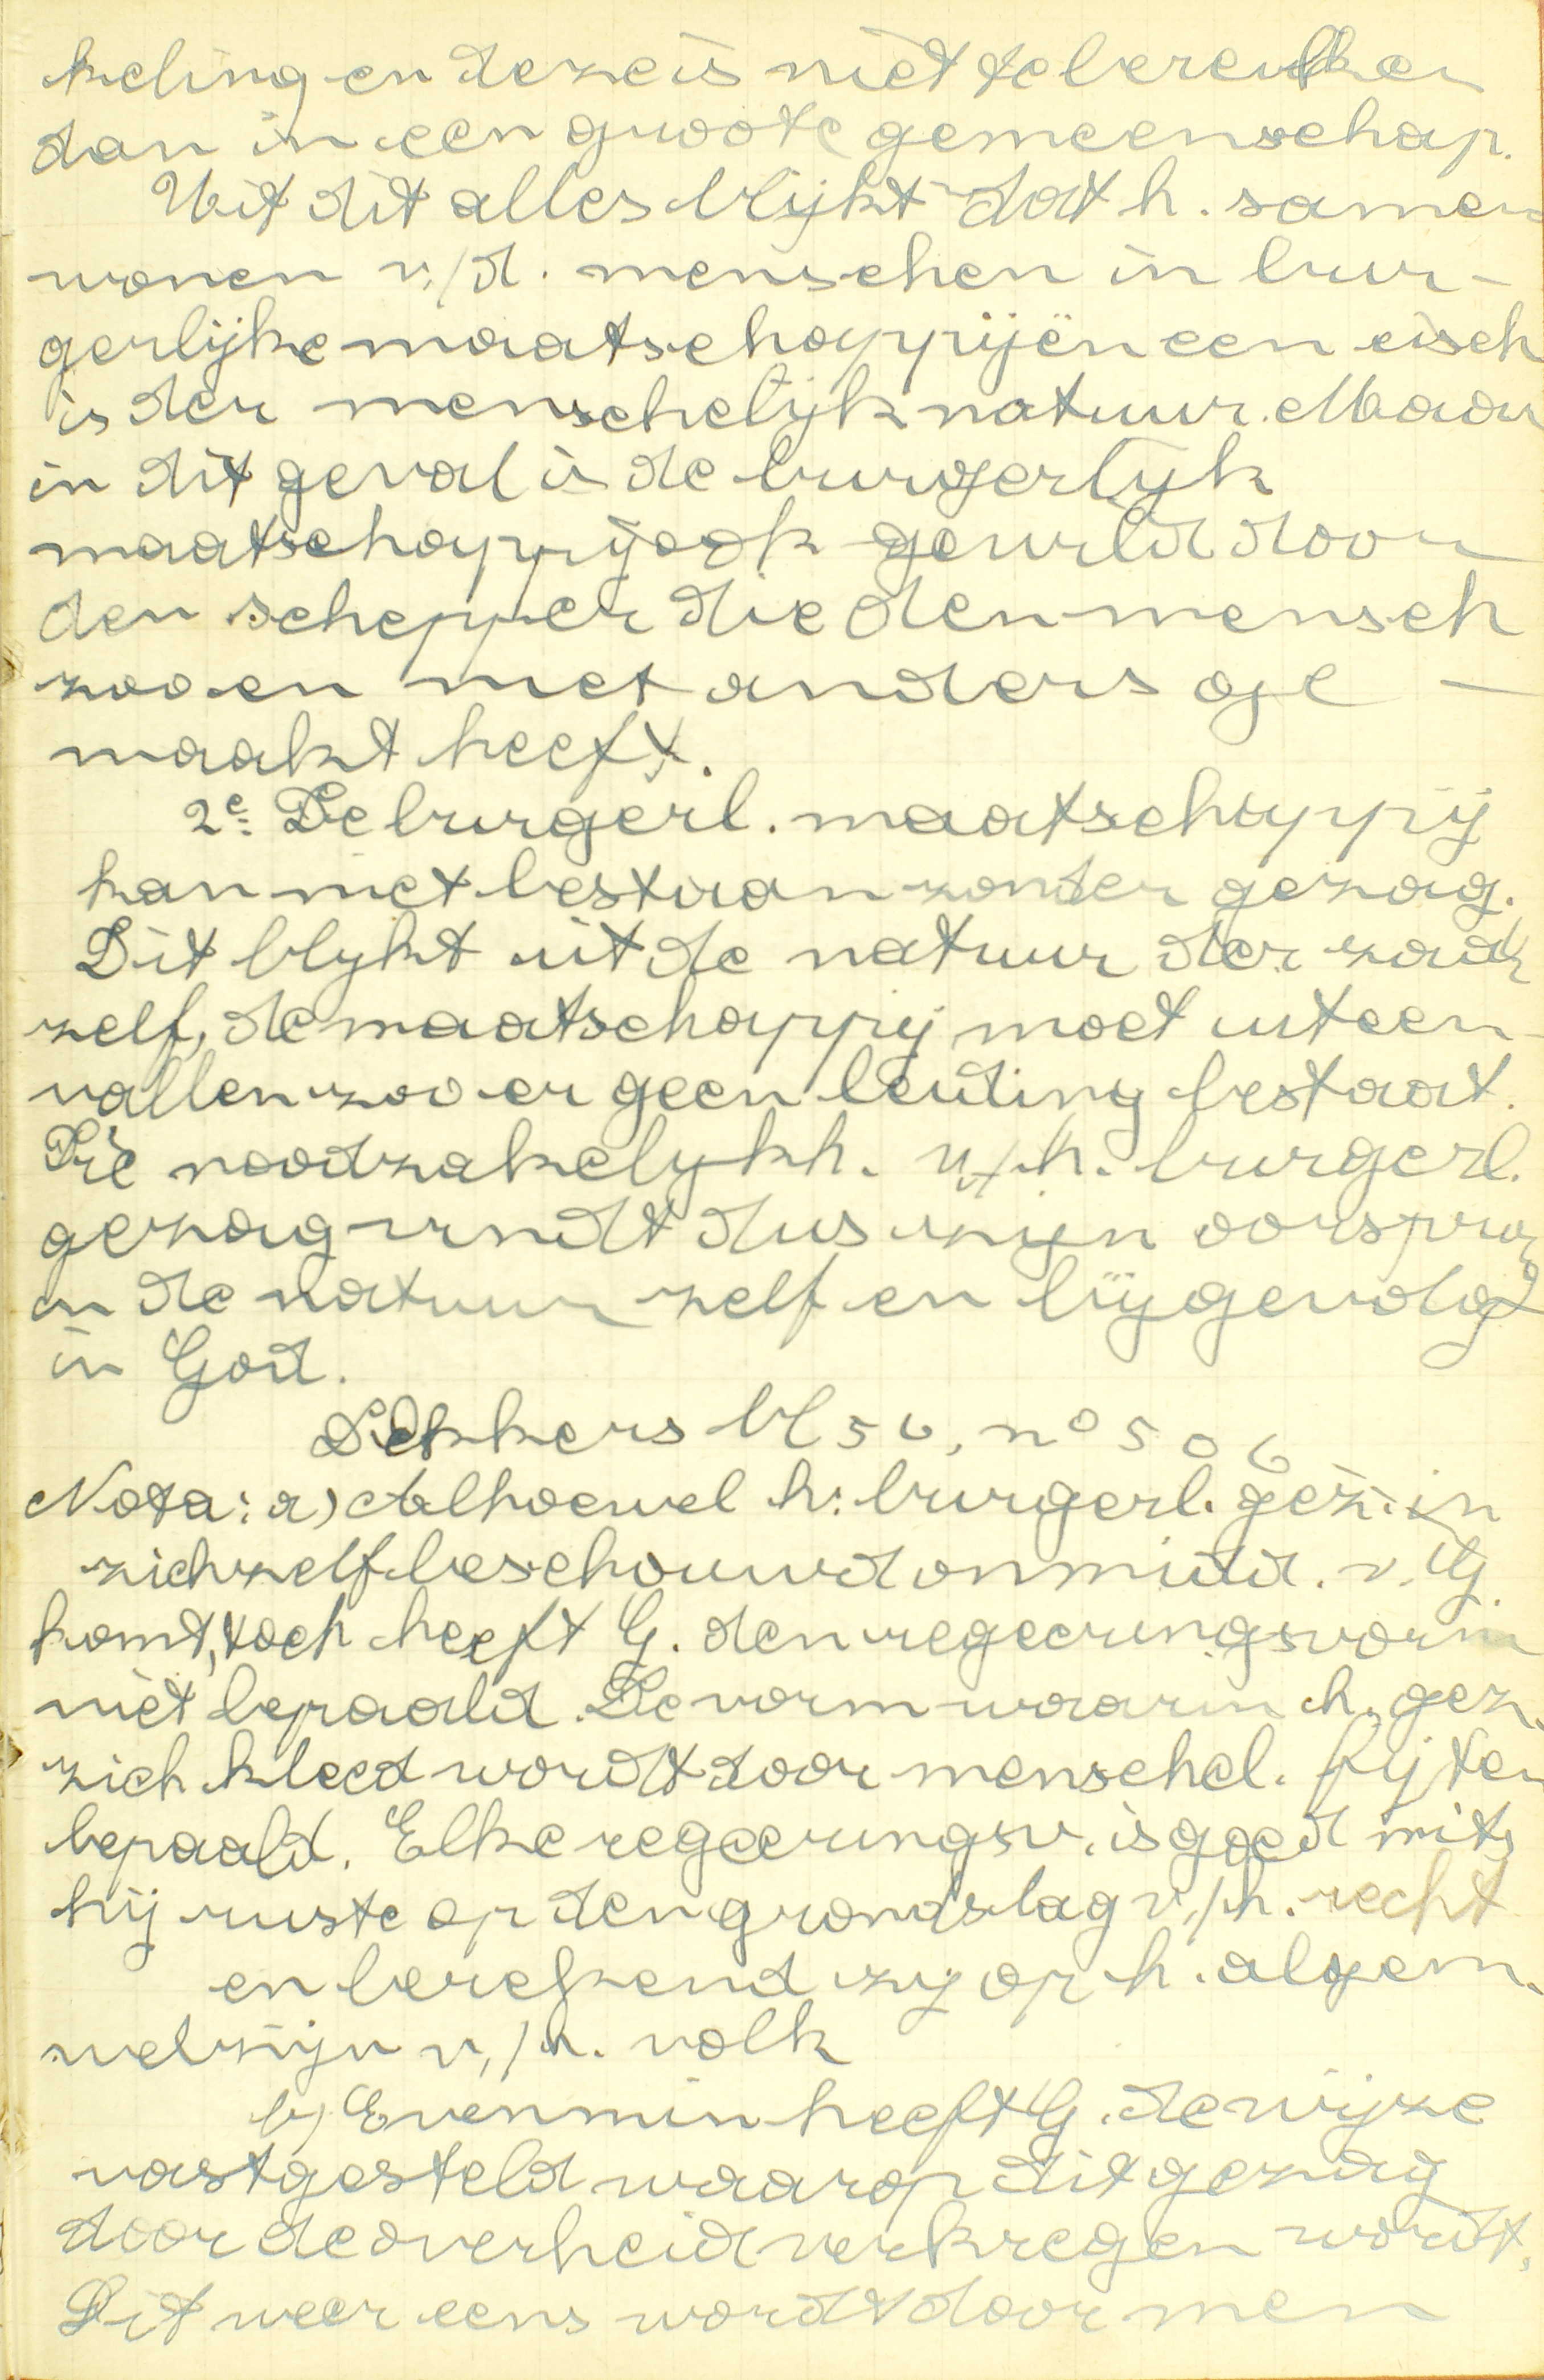 keling en deze is niet te bereiken
dan in een groote gemeenschap.
Uit dit alles blijkt dat h. samen
wonen v/d. menschen in bur-
gerlijke maatschappijën een eisch
is der menschelijk natuur. Maar
in dit geval is de burgerlijk
maatschappij ook gewild door
den schepper die den mensch
zoo en niet anders ge-
maakt heeft.
2e De burgerl. maatschappij
kan niet bestaan zonder gezag.
Dit blykt uit de natuur der zaak
zelf, de maatschappij moet uiteen
vallen zoo er geen leiding bestaat.
Die noodzakelykh. v/h. burgerl.
gezag vindt dus zijn oorspron
in de natuur zelf en bijgevolg
in God.
Dekkers bl 56, n° 506
Nota: a) Alhoewel h. burgerl. gez. in
zichzelf beschouwd onmidd. v. G.
komt, toch heeft G. den regeeringsvorm
niet bepaald. De vorm waarin h. gez.
zich kleed wordt door menschel. fijten
bepaald. Elke regeeringsv. is goed mits
hij ruste op den grondslag v/h. recht
en berekend zij op h. algem.
welzijn v/h. volk
b) Evenmin heeft G. de wijze
vastgesteld waarop dit gezag
door de overheid verkregen wordt.
Dit weer eens wordt door men